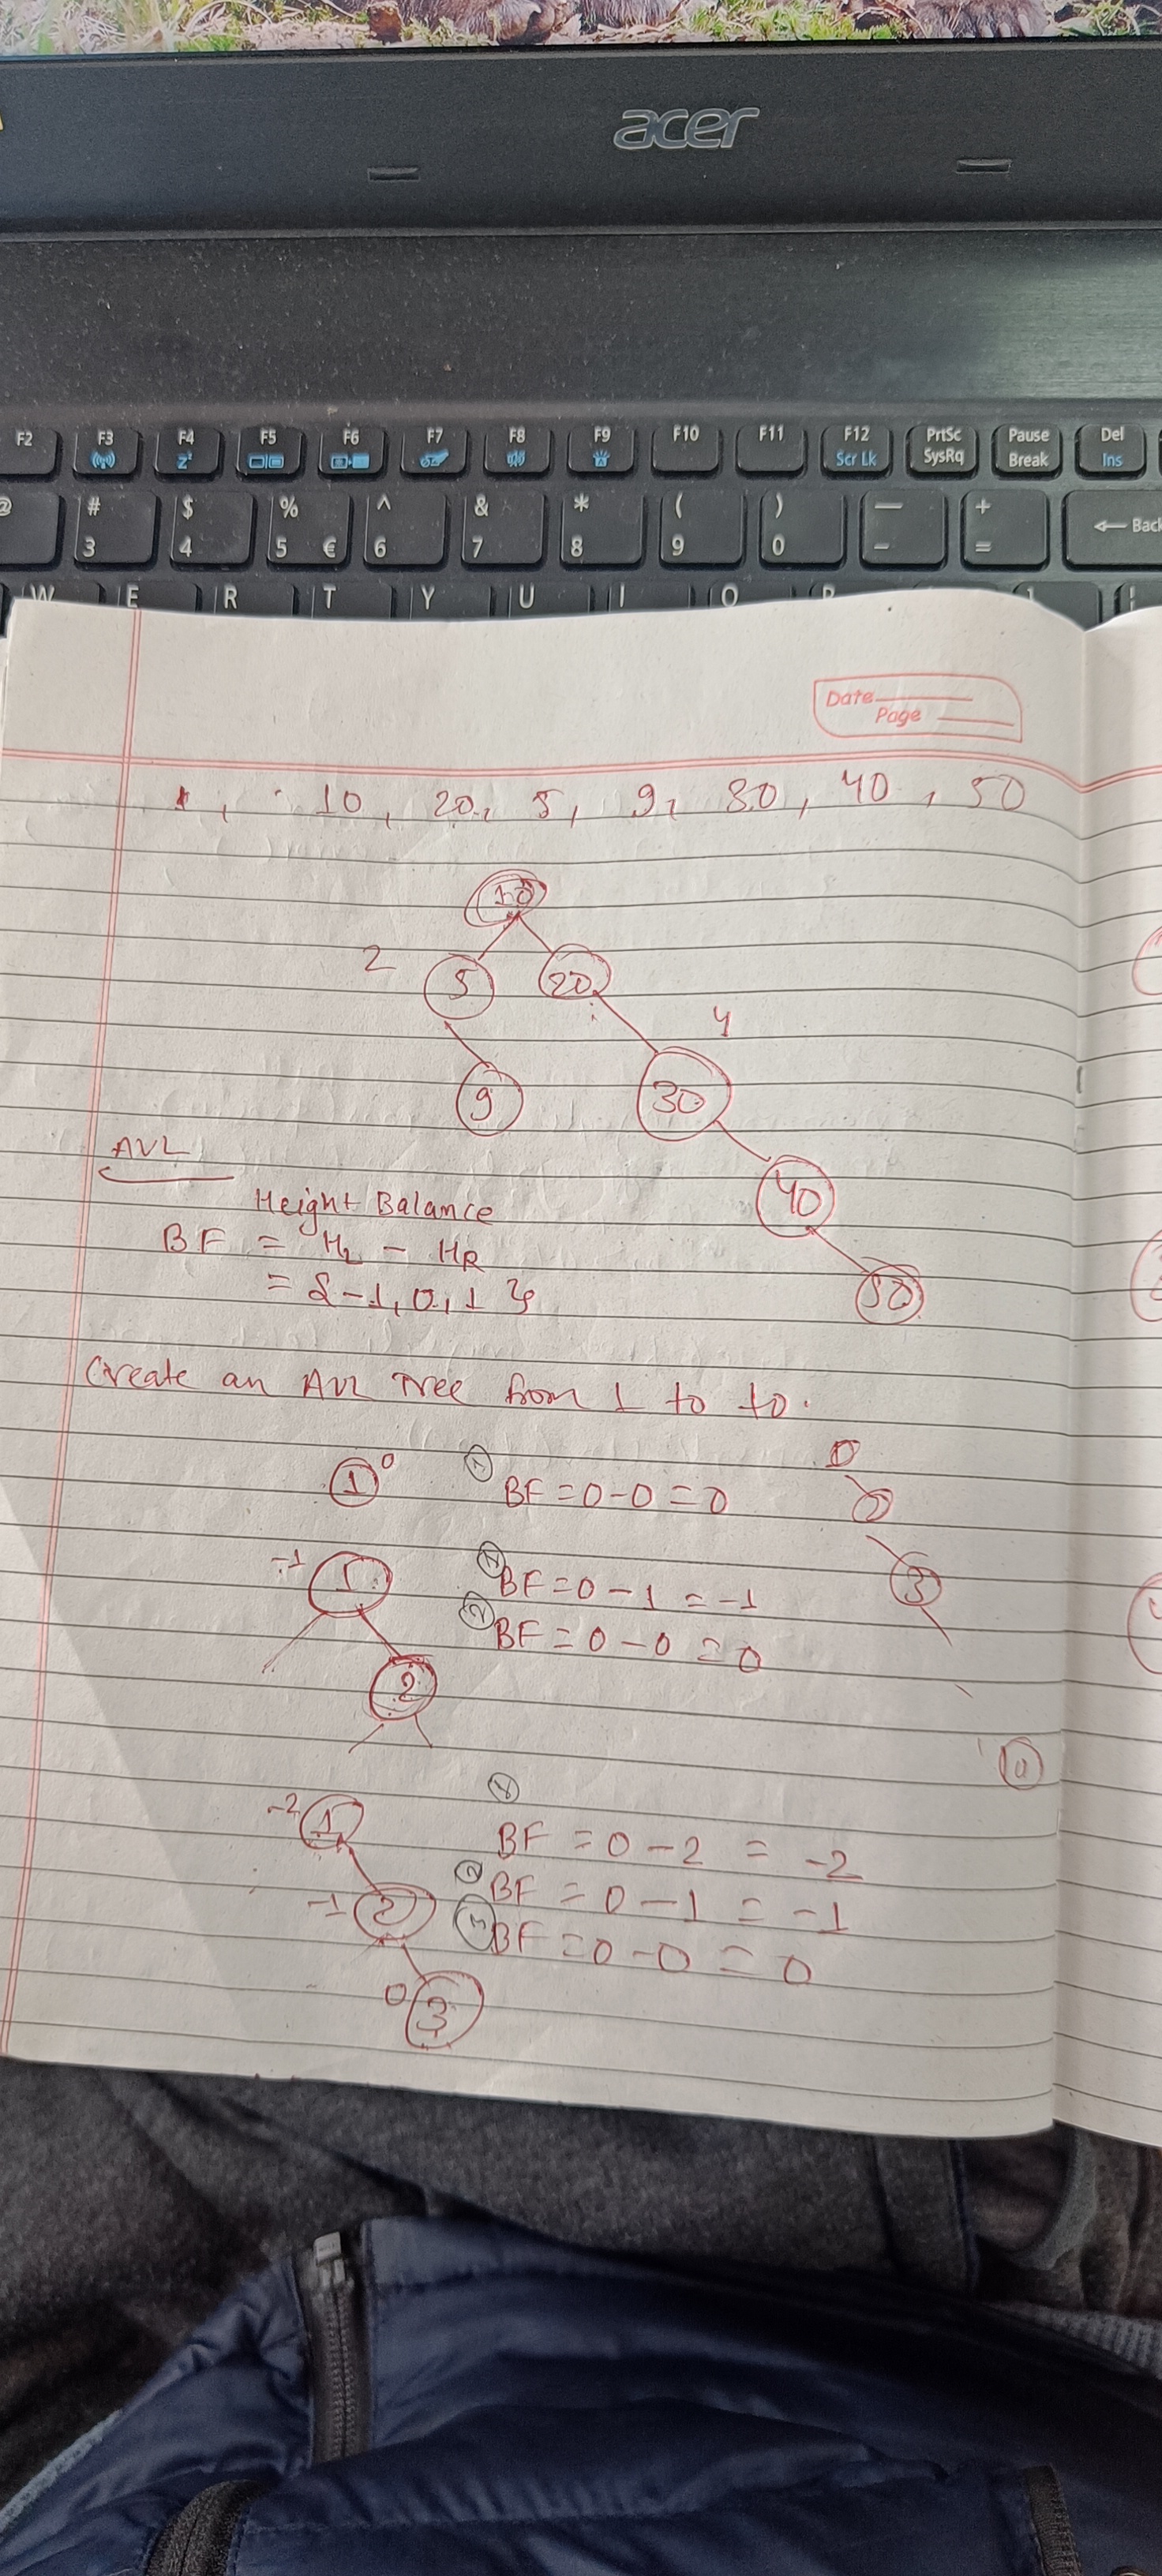 acer
F2 F3 F4 F5 F6 F7 F8 F9 F10 F11 F12 PrtSc Pause Del
Scr Lk SysRq Break Ins
@ # $ % ^ & * ( ) — +
3 4 5 € 6 7 8 9 0 - = ← Back
W E R T Y U I O P
Date
Page
10, 20, 5, 9, 30, 40, 50
10
2 5 20
4
9 30
AVL
40
Height Balance
BF = HL - HR
50
= {-1, 0, 1}
Create an AVL Tree from 1 to 10.
1 0 1 BF = 0 - 0 = 0
2
-1 1 1 BF = 0 - 1 = -1
3
2 BF = 0 - 0 = 0
2
10
-2 1 1
BF = 0 - 2 = -2
-1 2 2 BF = 0 - 1 = -1
3 BF = 0 - 0 = 0
0 3